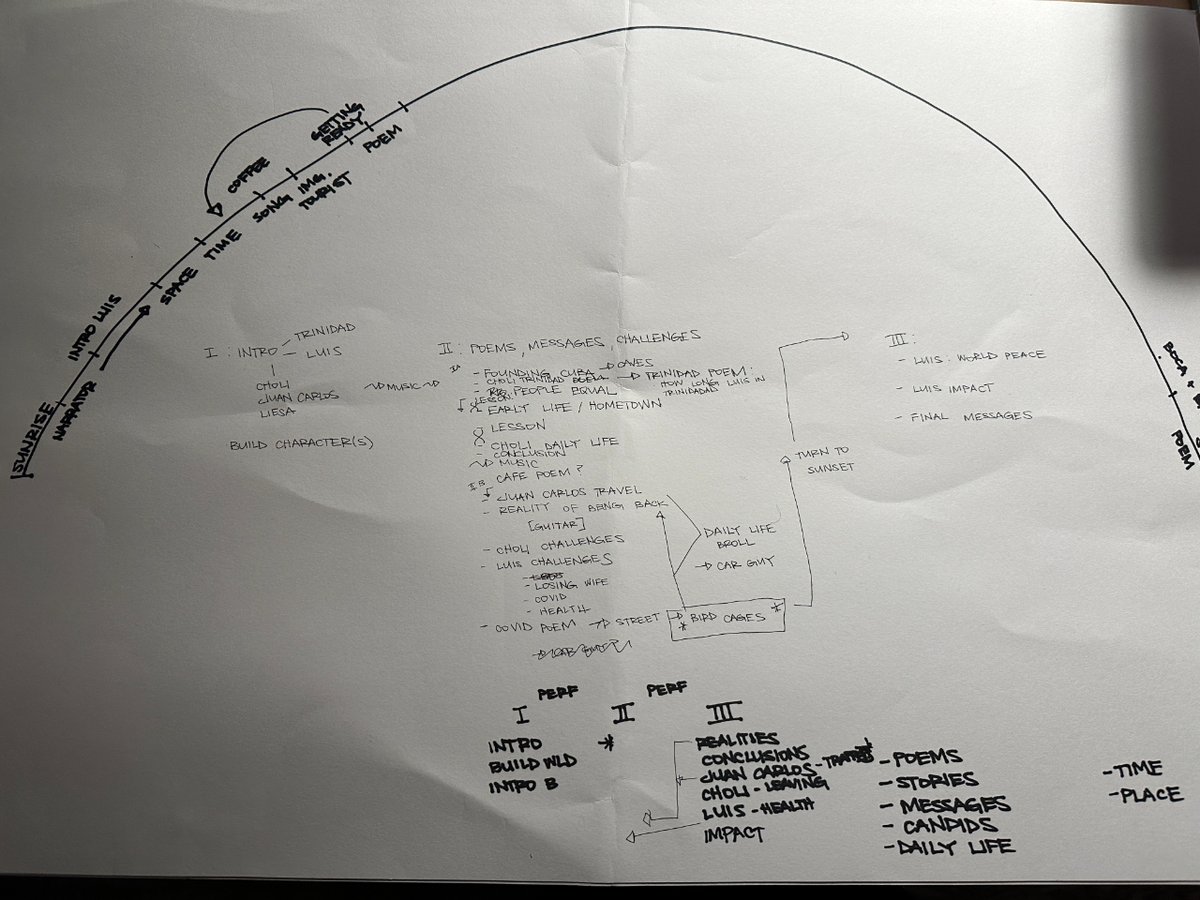 SUNRISE
NARRATOR
INTRO LUIS
SPACE
TIME
COFFEE
SONG
IMG.
TOURIST
GETTING
READY
POEM
BOCA
POEM
I : INTRO
TRINIDAD
LUIS
CHOLI
JUAN CARLOS
LIESA
BUILD CHARACTER(S)
MUSIC
II : POEMS, MESSAGES, CHALLENGES
- FOUNDING CUBA → ONES
- CHOLI TRINIDAD POEM → TRINIDAD POEM:
HOW LONG LUIS IN
TRINIDAD
PEOPLE EQUAL
LESSON
EARLY LIFE / HOMETOWN
- LESSON
- CHOLI DAILY LIFE
- CONCLUSION
MUSIC
CAFE POEM?
- JUAN CARLOS TRAVEL
- REALITY OF BEING BACK
[GUITAR]
- CHOLI CHALLENGES
- LUIS CHALLENGES
- LOSING WIFE
- COVID
- HEALTH
- COVID POEM → STREET
* BIRD CAGES *
DAILY LIFE
BROLL
→ CAR GUY
TURN TO
SUNSET
III :
- LUIS : WORLD PEACE
- LUIS IMPACT
- FINAL MESSAGES
PERF
PERF
I
INTRO
BUILD WLD
INTRO B
II
*
III
REALITIES
CONCLUSIONS
JUAN CARLOS -
CHOLI - LEAVING
LUIS - HEALTH
IMPACT
- POEMS
- STORIES
- MESSAGES
- CANDIDS
- DAILY LIFE
- TIME
- PLACE